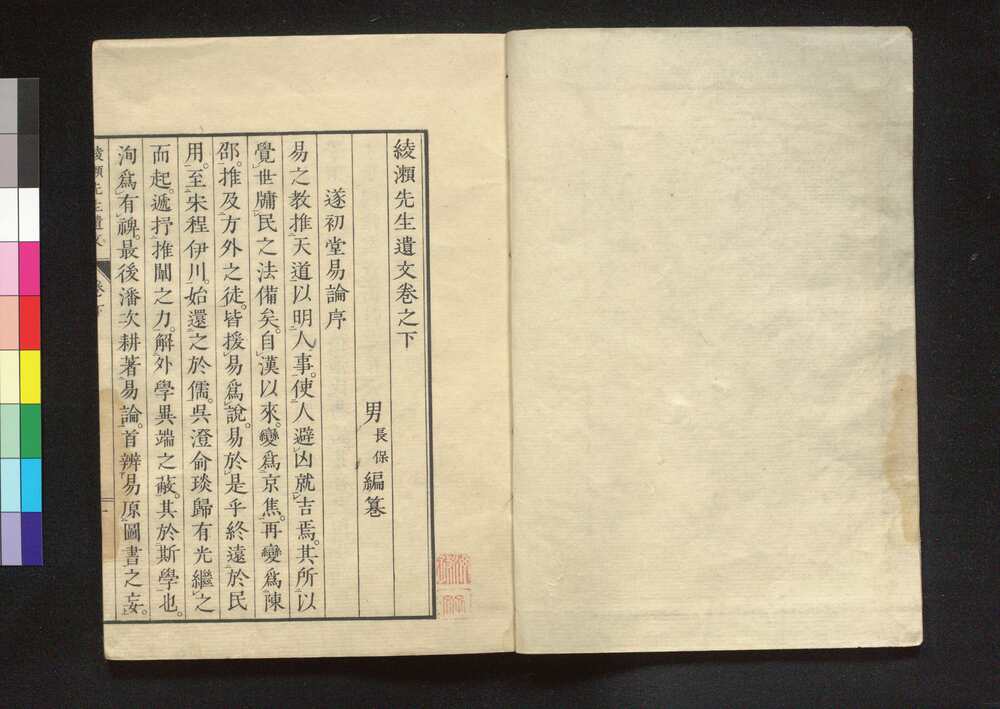 綾瀬先生遺文卷之下
男長保編纂
遂初堂易論序
易之教推天道以明人事。使人避凶就吉焉。其所以
覺世牖民之法備矣。自漢以來。變爲京焦。再變爲陳
邵。推及方外之徒。皆援易爲說。易於是乎終遠於民
用。至宋程伊川。始還之於儒。吳澄俞琰歸有光繼之
而起。遞抒推闡之力。解外學異端之蔽。其於斯學也。
洵爲有裨。最後潘次耕著易論。首辨易原圖書之妄。
綾瀬先生遺文 卷之下 一